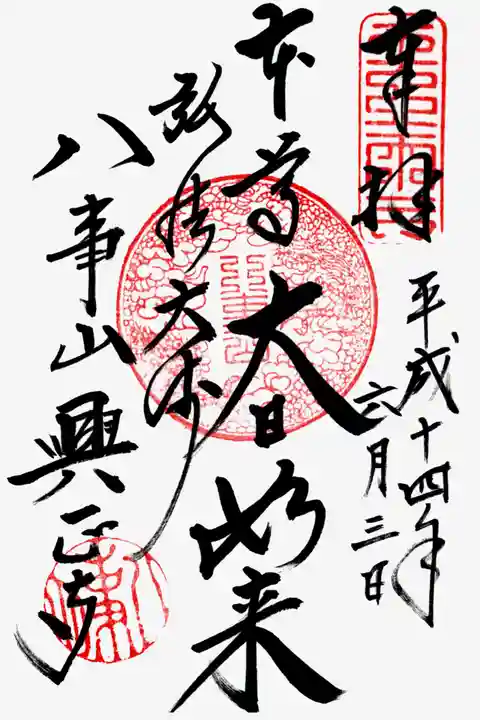 奉拝
平成十四年
六月三日
本尊
大日如来
弘法大師
八事山
興正寺